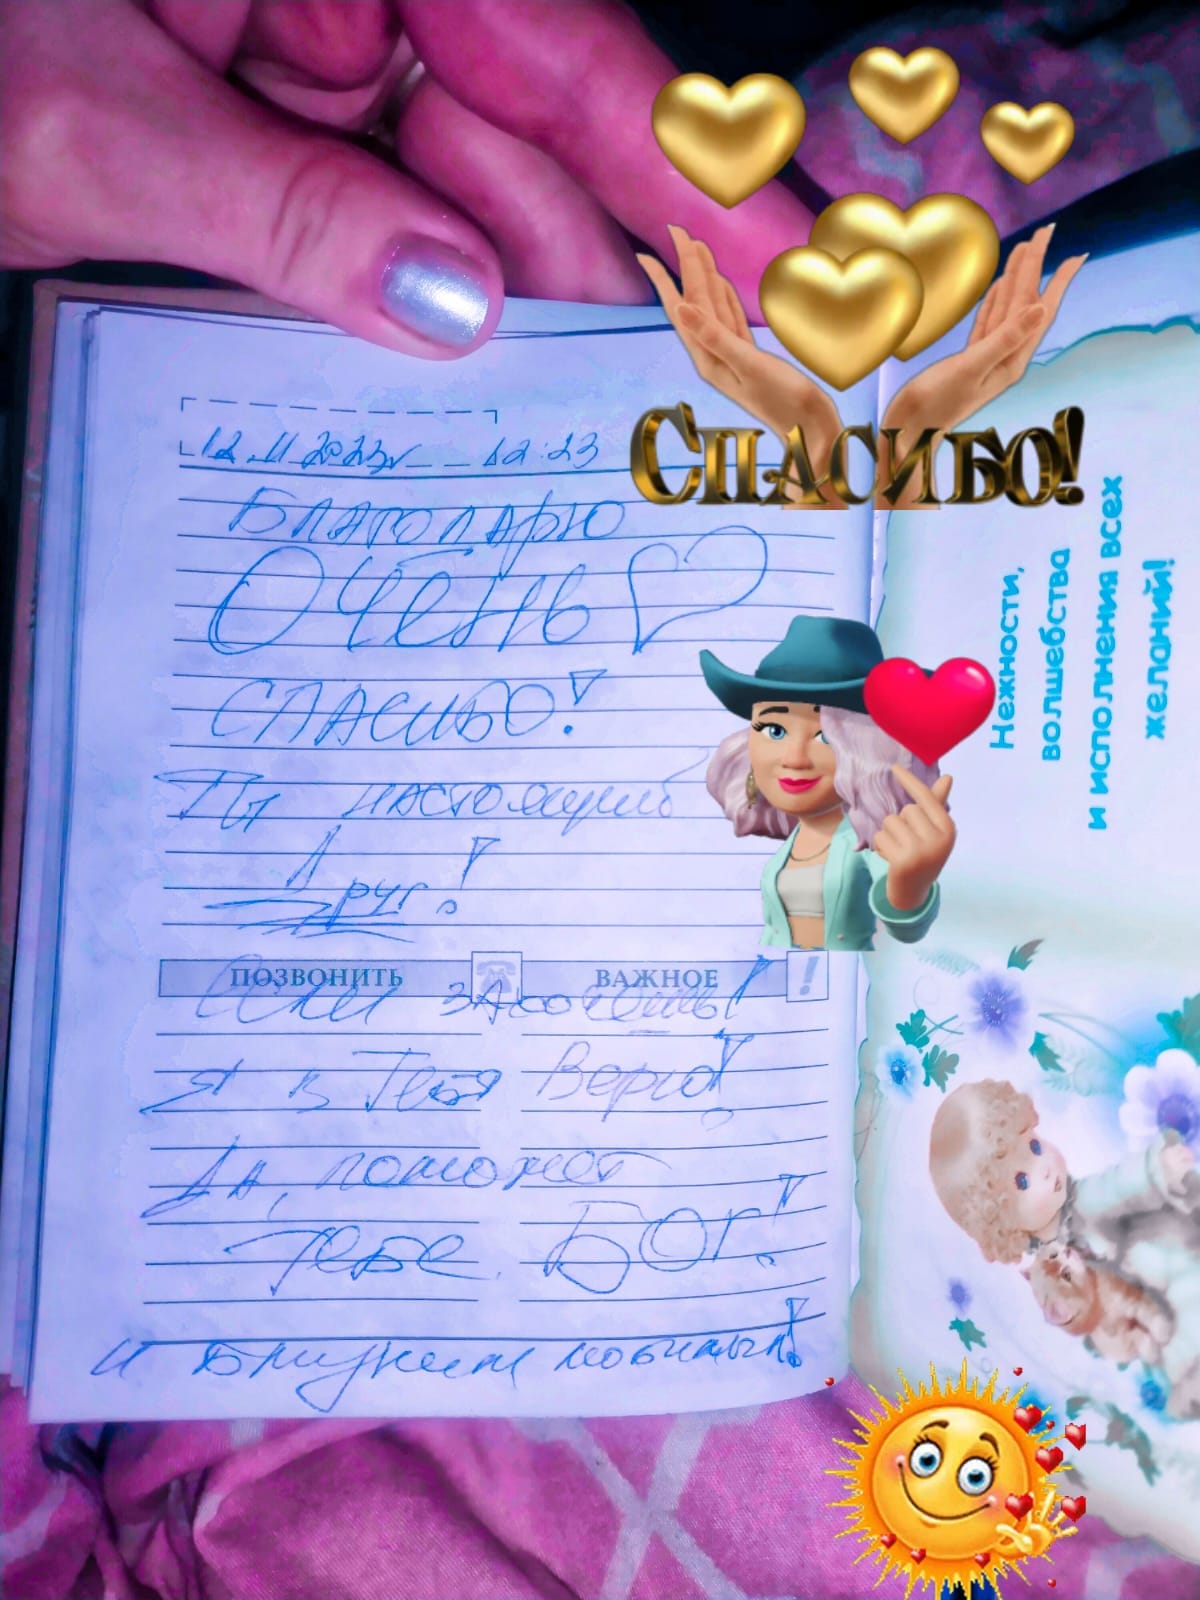 12.11.2023г 12:23
Благодарю
ОЧЕНЬ
СПАСИБО!
Ты настоящий
Друг!
ПОЗВОНИТЬ ВАЖНОЕ !
если захочешь!
Я в Тебя Верю!
Да, поможет
Тебе БОГ!
и
СПАСИБО!
Нежности,
волшебства
и исполнения всех
желаний!